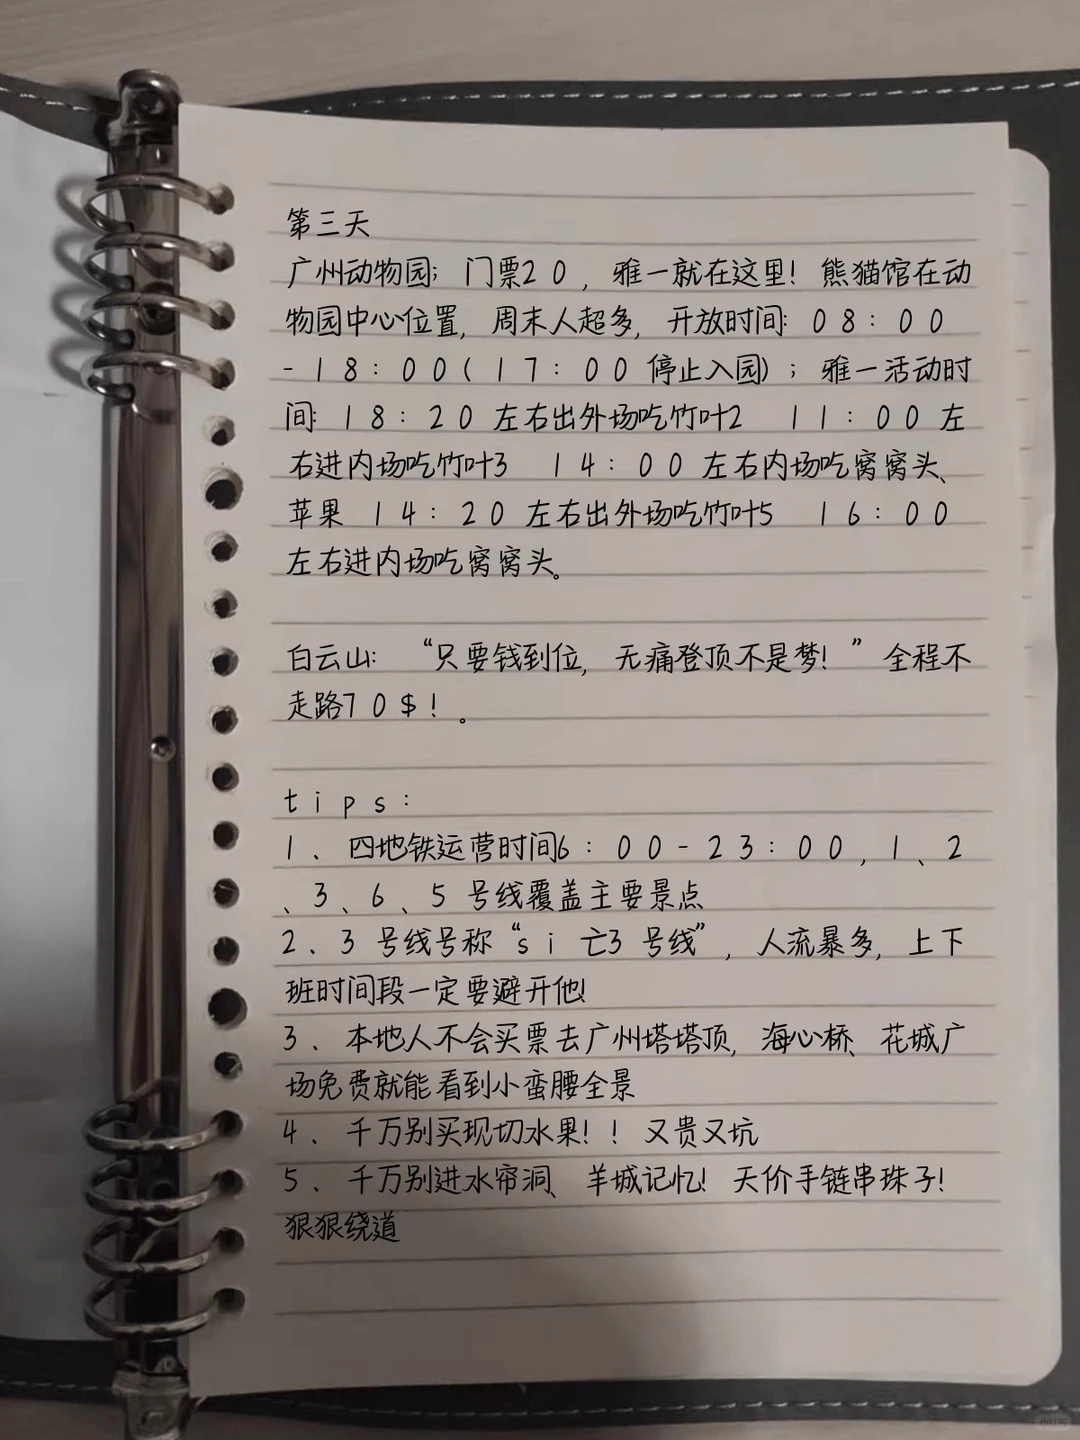 第三天
广州动物园；门票20，雅一就在这里！熊猫馆在动
物园中心位置，周末人超多，开放时间：08：00
-18：00(17：00停止入园)；雅一活动时
间：18：20左右出外场吃竹叶2 11：00左
右进内场吃竹叶3 14：00左右内场吃窝窝头、
苹果 14：20左右出外场吃竹叶5 16：00
左右进内场吃窝窝头。
白云山：“只要钱到位，无痛登顶不是梦！”全程不
走路70$！。
tips：
1、四地铁运营时间6：00-23：00，1、2
、3、6、5号线覆盖主要景点
2、3号线号称“si亡3号线”，人流暴多，上下
班时间段一定要避开他！
3、本地人不会买票去广州塔塔顶，海心桥、花城广
场免费就能看到小蛮腰全景
4、千万别买现切水果！！又贵又坑
5、千万别进水帘洞、羊城记忆！天价手链串珠子！
狠狠绕道